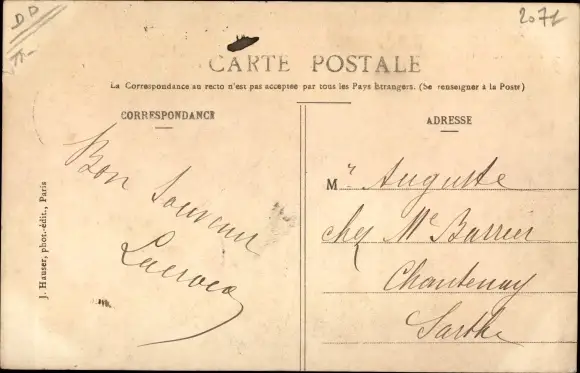 DD
2071
CARTE POSTALE
La Correspondance au recto n'est pas acceptée par tous les Pays Etrangers. (Se renseigner à la Poste)
CORRESPONDANCE
ADRESSE
Bon Souvenir
Lacroix
Mr Auguste
chez Me Barrier
Chantenay
Sarthe
J. Hauser, phot.-édit., Paris